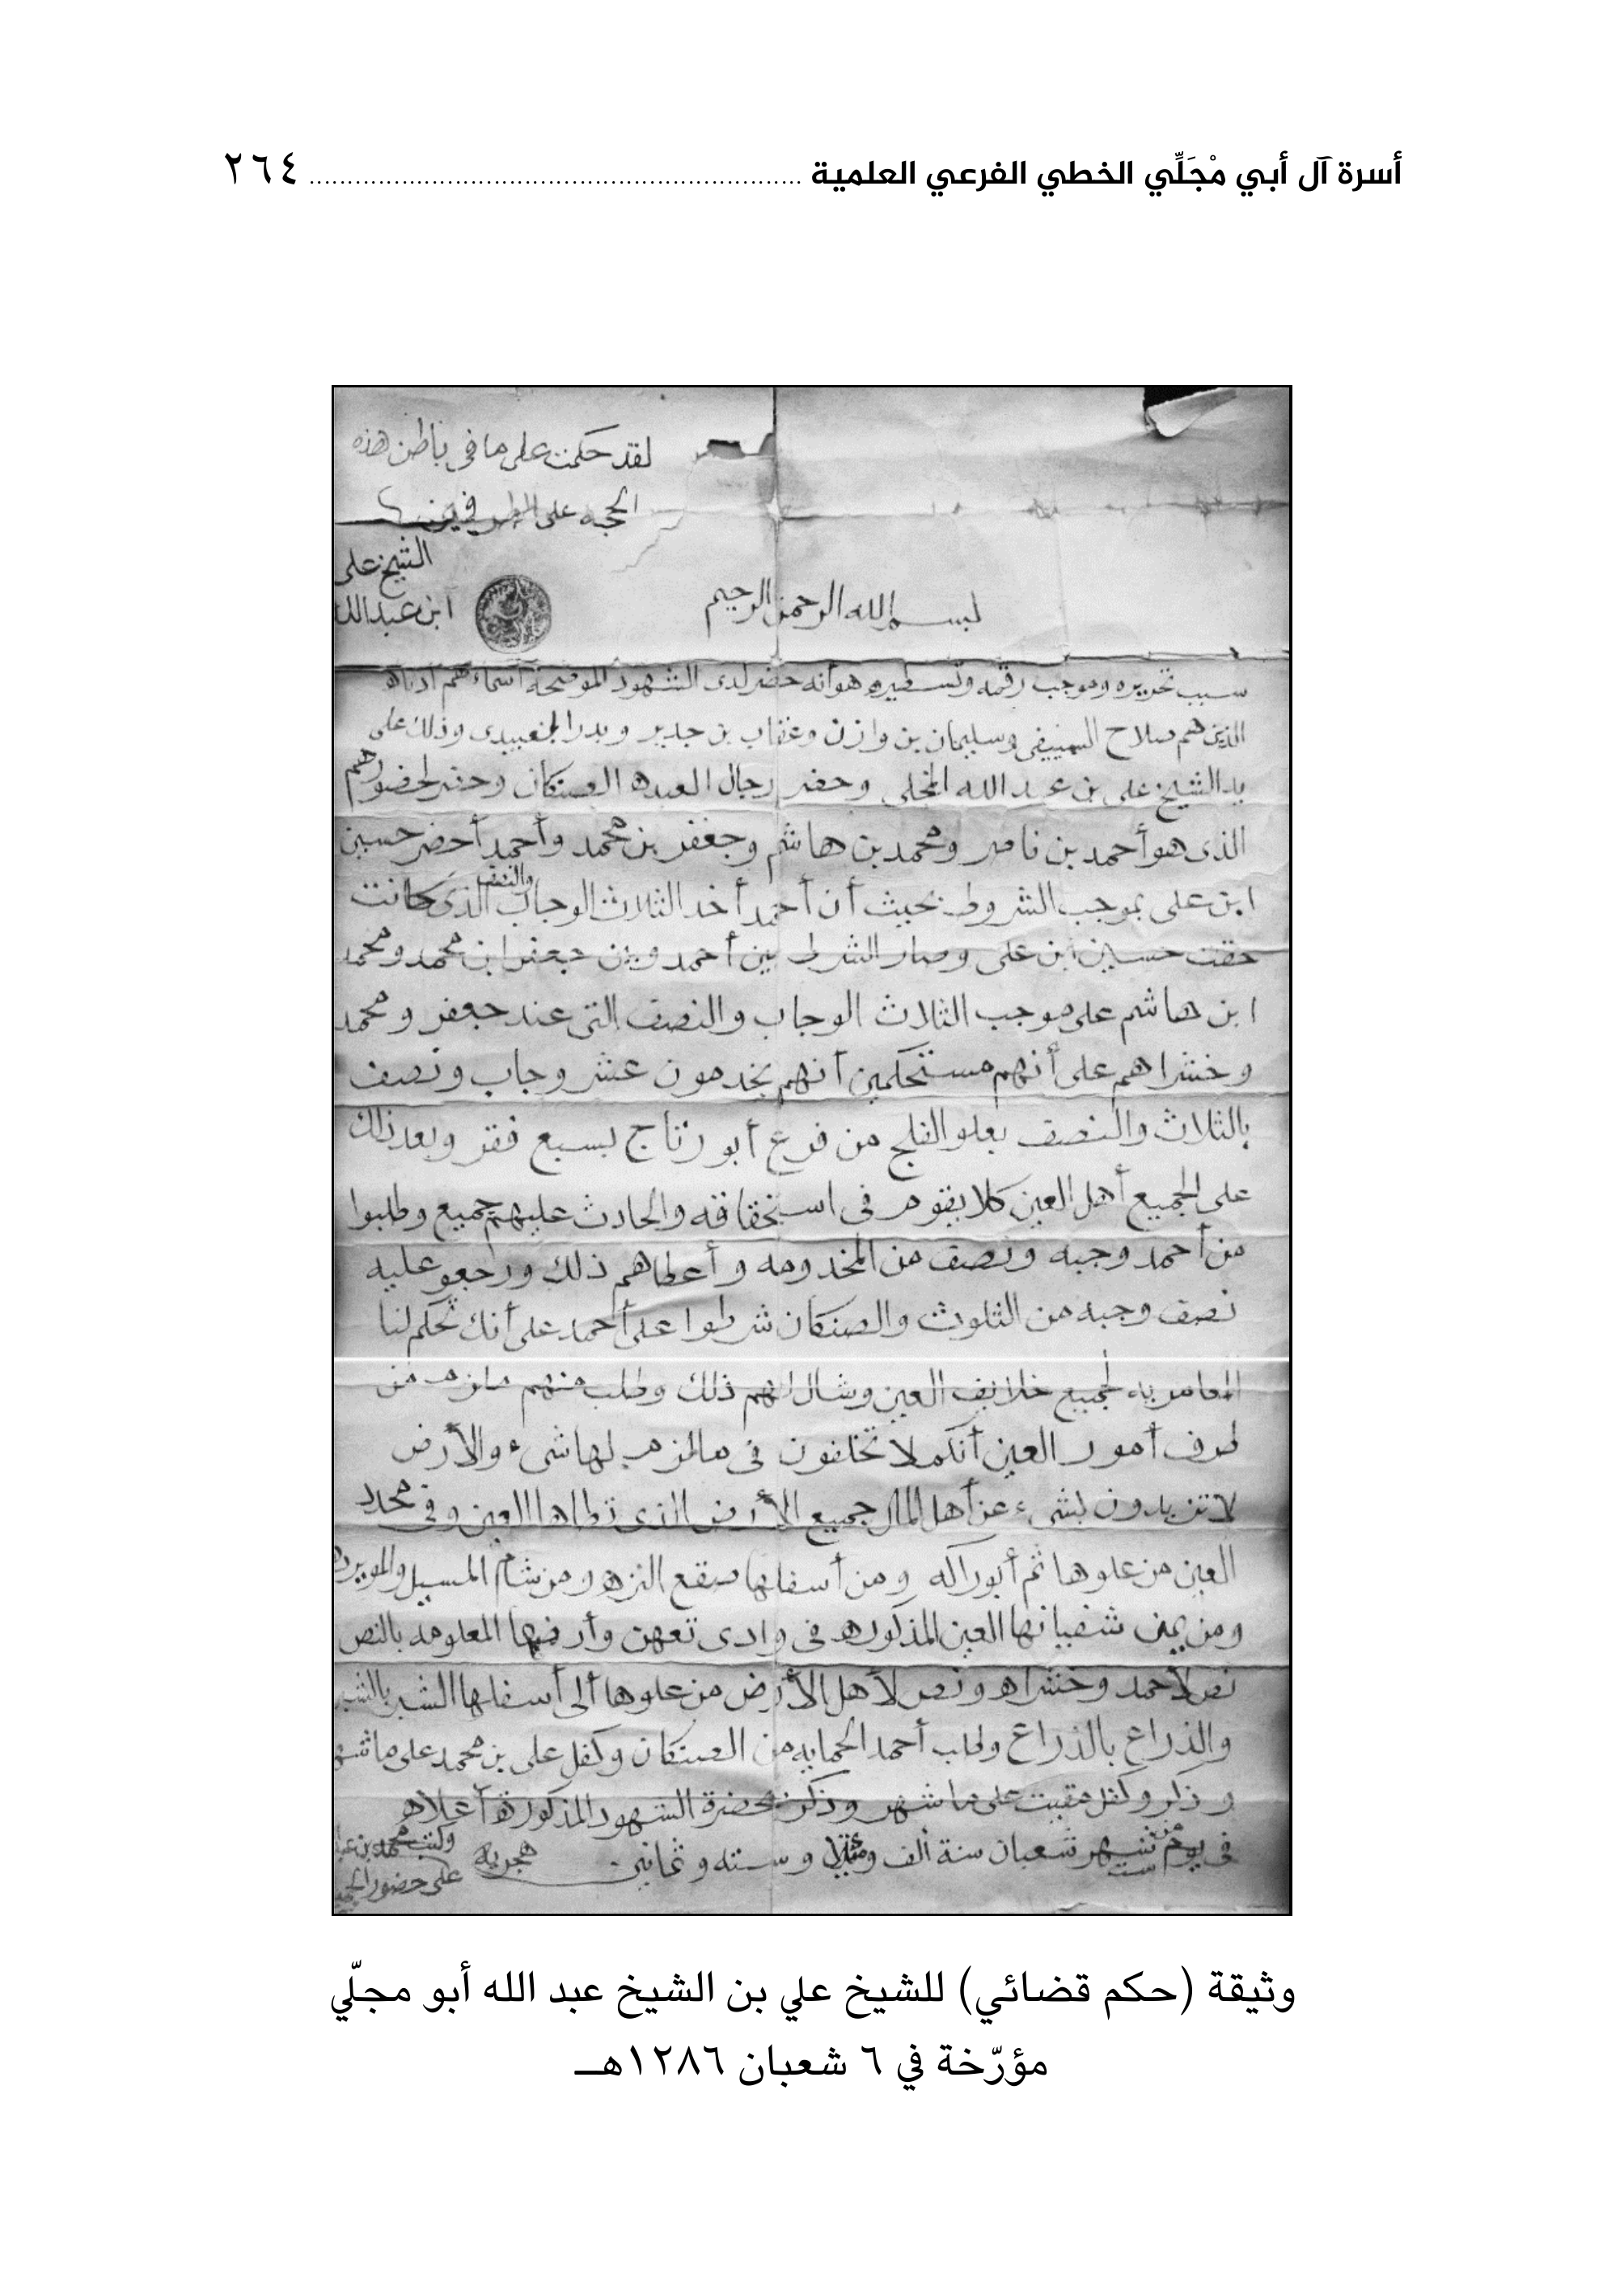 أسرة آل أبي مْجَلِّي الخطي الفرعي العلمية ................................................................ ٢٦٤
لقد حكمت على ما في باطن هذه
الحجه على الطرفين
الشيخ على
ابن عبدالله
بسم الله الرحمن الرحيم
سبب تحريره وموجب رقمه وتسطيره هو أنه حضر لدى الشهود الموضحة أسماءهم أدناه
الذين هم صلاح وسليمان بن وازن وعقاب بن جدير وبدر وذلك على
يد الشيخ على بن عبد الله المجلى وحضر رجال العبده الصنكان وحضر لحضورهم
الذى هو أحمد بن ناصر ومحمد بن هاشم وجعفر بن محمد وأحمد أحضر حسين
ابن على بموجب الشروط بحيث أن أحمد أخد الثلاث الوجاب والنصف الذى كانت
حقت حسين ابن على وصار الشرط بين أحمد وبين جعفر ابن محمد ومحمد
ابن هاشم على موجب الثلاث الوجاب والنصف التى عند جعفر ومحمد
وخشراهم على أنهم مستحكمين أنهم يخدمون عشر وجاب ونصف
بالثلاث والنصف يعلو الفلج من فرع أبو رتاج بسبع فقر وبعد ذلك
على الجميع أهل العين كلا يقوم فى استحقاقه والحادث عليهم جميع وطلبوا
من أحمد وجبه ونصف من المخدومه وأعطاهم ذلك ورجعو عليه
نصف وجبه من الثلوث والصنكان شرطوا على أحمد على أنك تحكم لنا
لجميع خلايف العين وشال لهم ذلك وطلب منهم ملزم من
طرف أمور العين أنكم لا تخلفون فى مالزم لها شىء والأرض
لا تزيدون بشىء عن أهل المال جميع الأرض الذى تطاها العين وفى محدد
العين من علوها ثم أبوراكه ومن أسفلها صقع النزه ومن شام المسيل
ومن يمن شفيانها العين المذكوره فى وادى تعهن وأرضها المعلومه بالنص
نص لأحمد وخشراه ونص لأهل الأرض من علوها ألى أسفلها الشبر بالشبر
والذراع بالذراع وطلب أحمد الحمايه من الصنكان وكفل على بن محمد على ما شهر
وذكر وكفل مقبت على ما شهر وذكر بحضرة الشهود المذكورة أعلاه
فى يوم ست من شهر شعبان سنة ألف ومئتا وسته وثمانين هجريه
وكتب محمد بن
على حضور
وثيقة (حكم قضائي) للشيخ علي بن الشيخ عبد الله أبو مجلّي
مؤرّخة في ٦ شعبان ١٢٨٦هـ